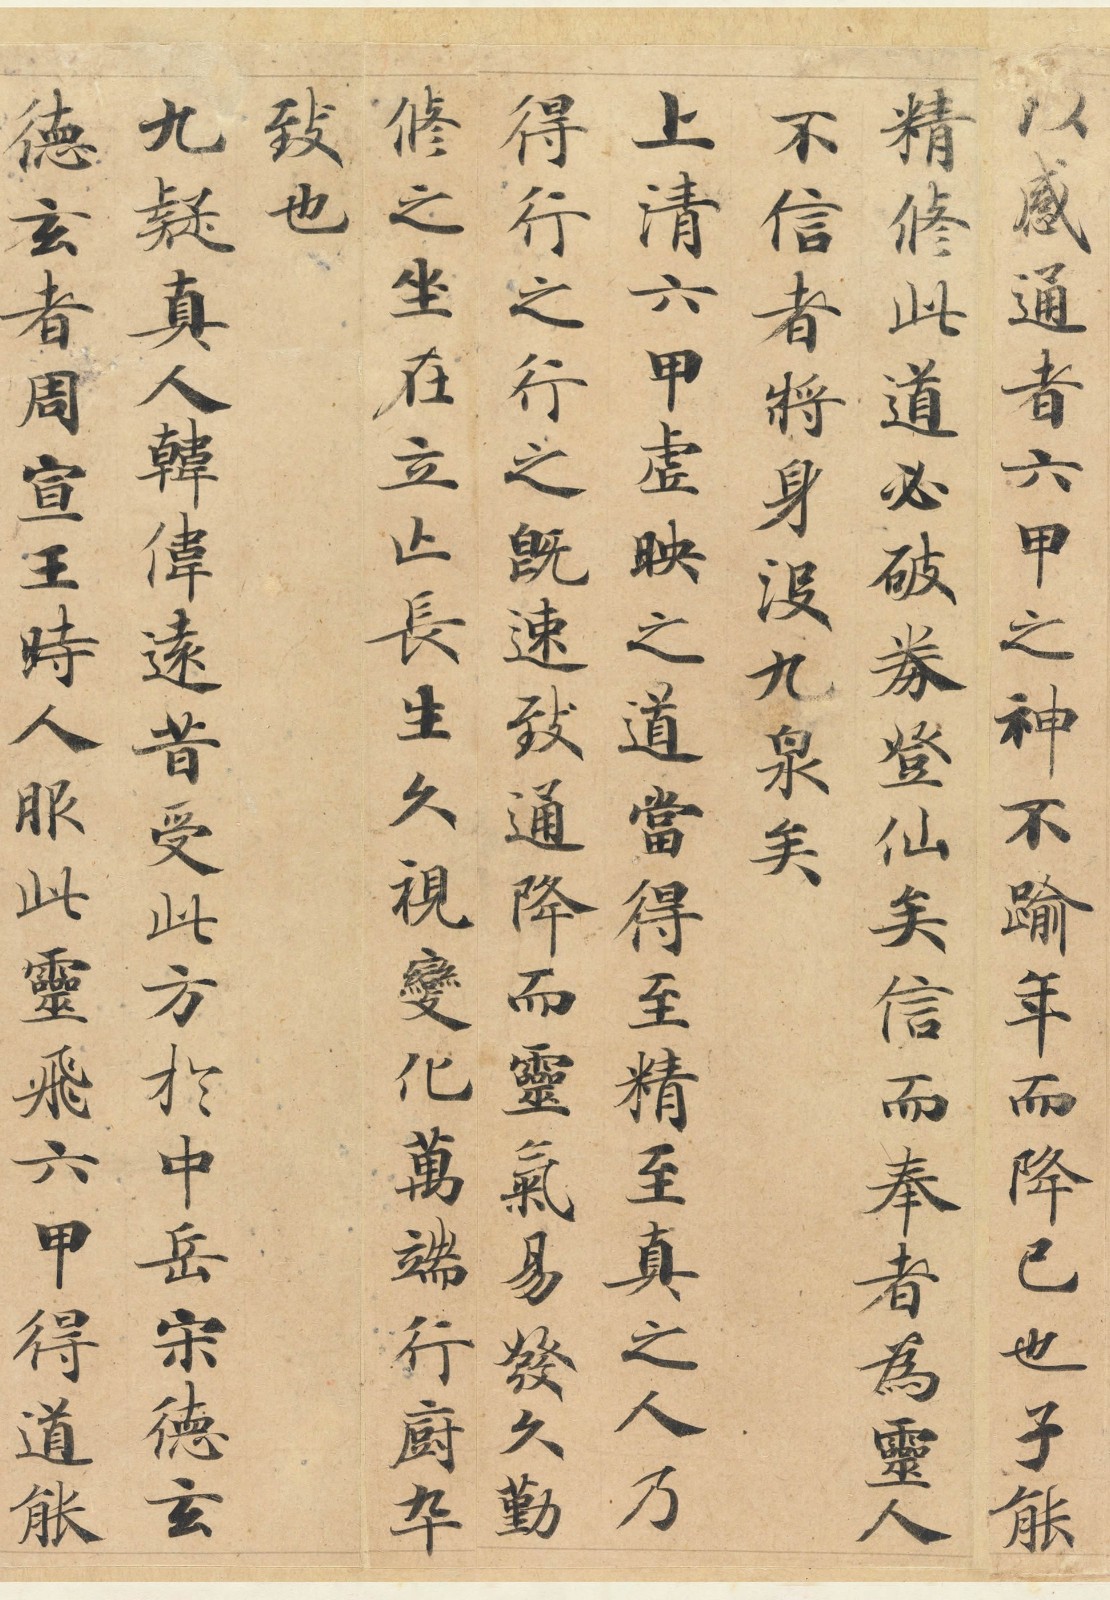 以感通者六甲之神不踰年而降已也子能
精修此道必破券登仙矣信而奉者為靈人
不信者將身沒九泉矣
上清六甲虛映之道當得至精至真之人乃
得行之行之既速致通降而靈氣易發久勤
修之坐在立亡長生久視變化萬端行廚卒
致也
九疑真人韓偉遠昔受此方於中岳宋德玄
德玄者周宣王時人服此靈飛六甲得道能